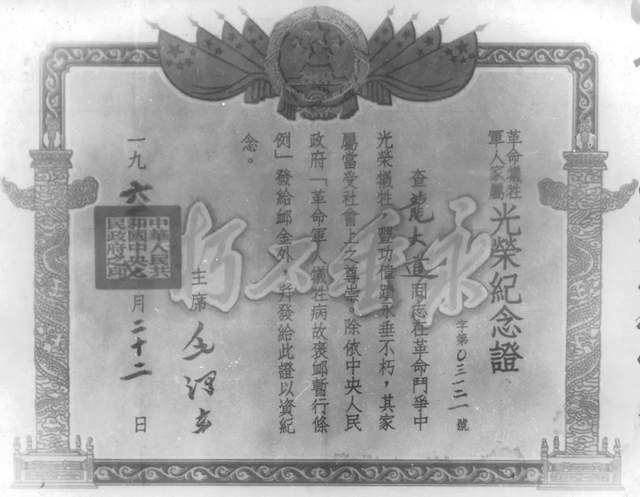 革命犧牲
軍人家屬
光榮紀念證
字第〇三一二一號
查龍大道同志在革命鬥爭中
光榮犧牲,豐功偉蹟永垂不朽,其家
屬當受社會上之尊崇。除依中央人民
政府「革命軍人犧牲病故褒卹暫行條
例」發給卹金外,幷發給此證以資紀
念。
永垂不朽
主席 毛澤东
一九六 月二十二日
中華人民共
和國中央人
民政府之印